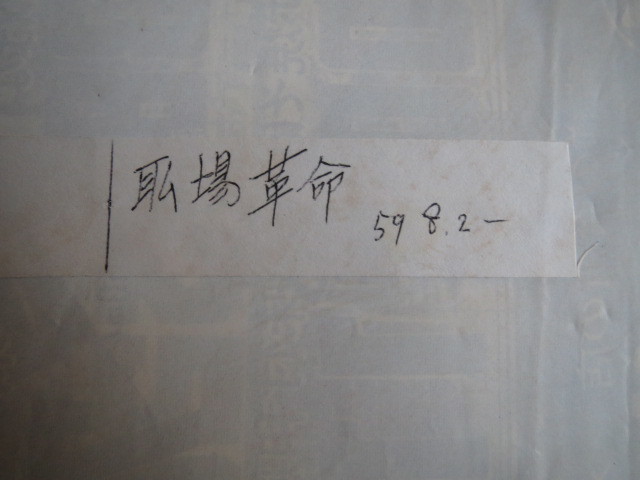 耺場革命 59 8.2―